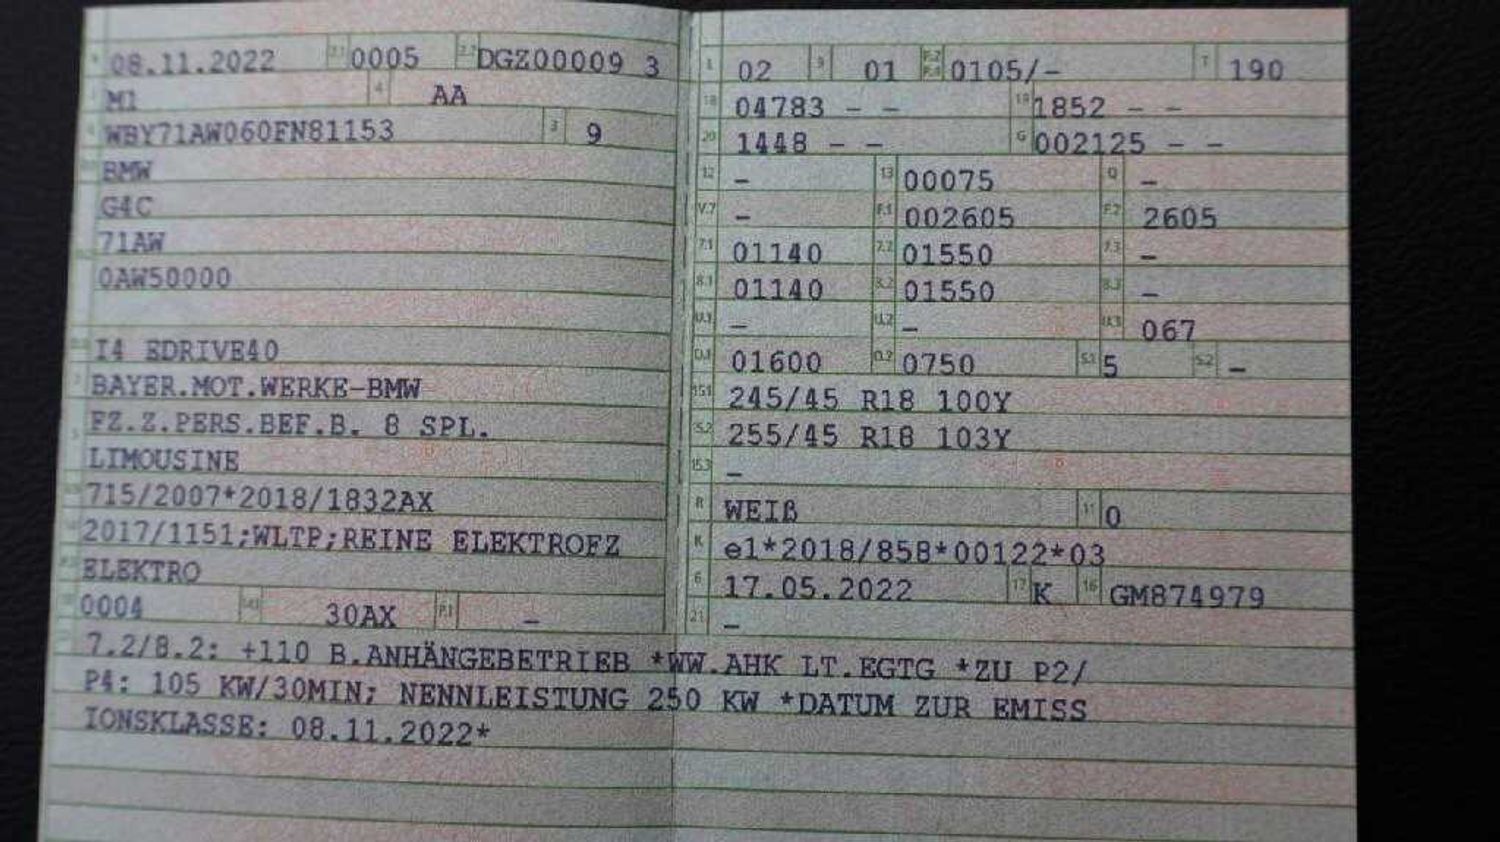 08.11.2022 2.1 0005 2.2 DGZ00009 3
M1 4 AA
WBY71AW060FN81153 3 9
BMW
G4C
71AW
0AW50000
I4 EDRIVE40
BAYER.MOT.WERKE-BMW
FZ.Z.PERS.BEF.B. 8 SPL.
LIMOUSINE
715/2007*2018/1832AX
2017/1151;WLTP;REINE ELEKTROFZ
ELEKTRO
0004 30AX P.1 –
L 02 9 01 P.2 P.4 0105/- T 190
18 04783 – – 19 1852 – –
20 1448 – – G 002125 – –
12 – 13 00075 Q –
V.7 – F.1 002605 F.2 2605
7.1 01140 7.2 01550 7.3 –
8.1 01140 8.2 01550 8.3 –
U.1 – U.2 – U.3 067
O.1 01600 O.2 0750 S.1 5 S.2 –
15.1 245/45 R18 100Y
15.2 255/45 R18 103Y
15.3 –
R WEIß 11 0
K e1*2018/858*00122*03
6 17.05.2022 17 K 16 GM874979
21 –
7.2/8.2: +110 B.ANHÄNGEBETRIEB *WW.AHK LT.EGTG *ZU P2/
P4: 105 KW/30MIN; NENNLEISTUNG 250 KW *DATUM ZUR EMISS
IONSKLASSE: 08.11.2022*